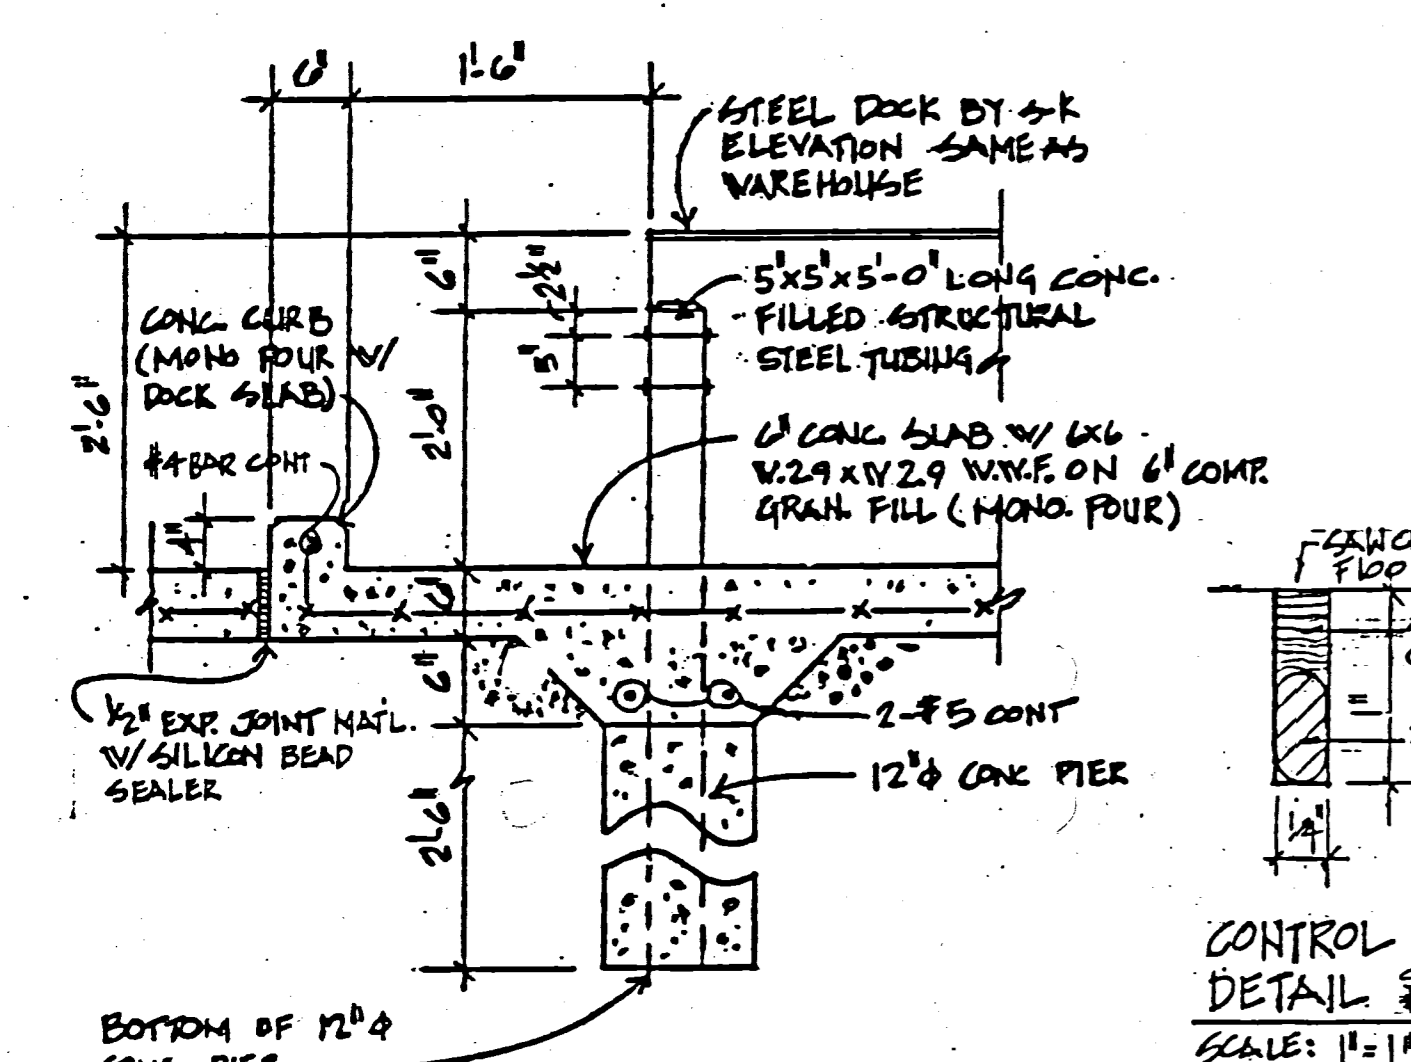 6" 1'-6"
STEEL DOCK BY S-K
ELEVATION SAME AS
WAREHOUSE
6"
2½"
5"x5"x5'-0" LONG CONC.
FILLED STRUCTURAL
STEEL TUBING
CONC. CURB
(MONO POUR W/
DOCK SLAB)
5"
2'-6"
2'-0"
#4 BAR CONT
6" CONC. SLAB W/ 6x6
W.2.9 x W 2.9 W.W.F. ON 6" COMP.
GRAN. FILL (MONO. POUR)
4"
6"
6"
½" EXP. JOINT MATL.
W/ SILICON BEAD
SEALER
2-#5 CONT
12"ϕ CONC PIER
2'-6"
BOTTOM OF 12"ϕ
CONC PIER
1/4"
CONTROL
DETAIL
SCALE: 1"=1"